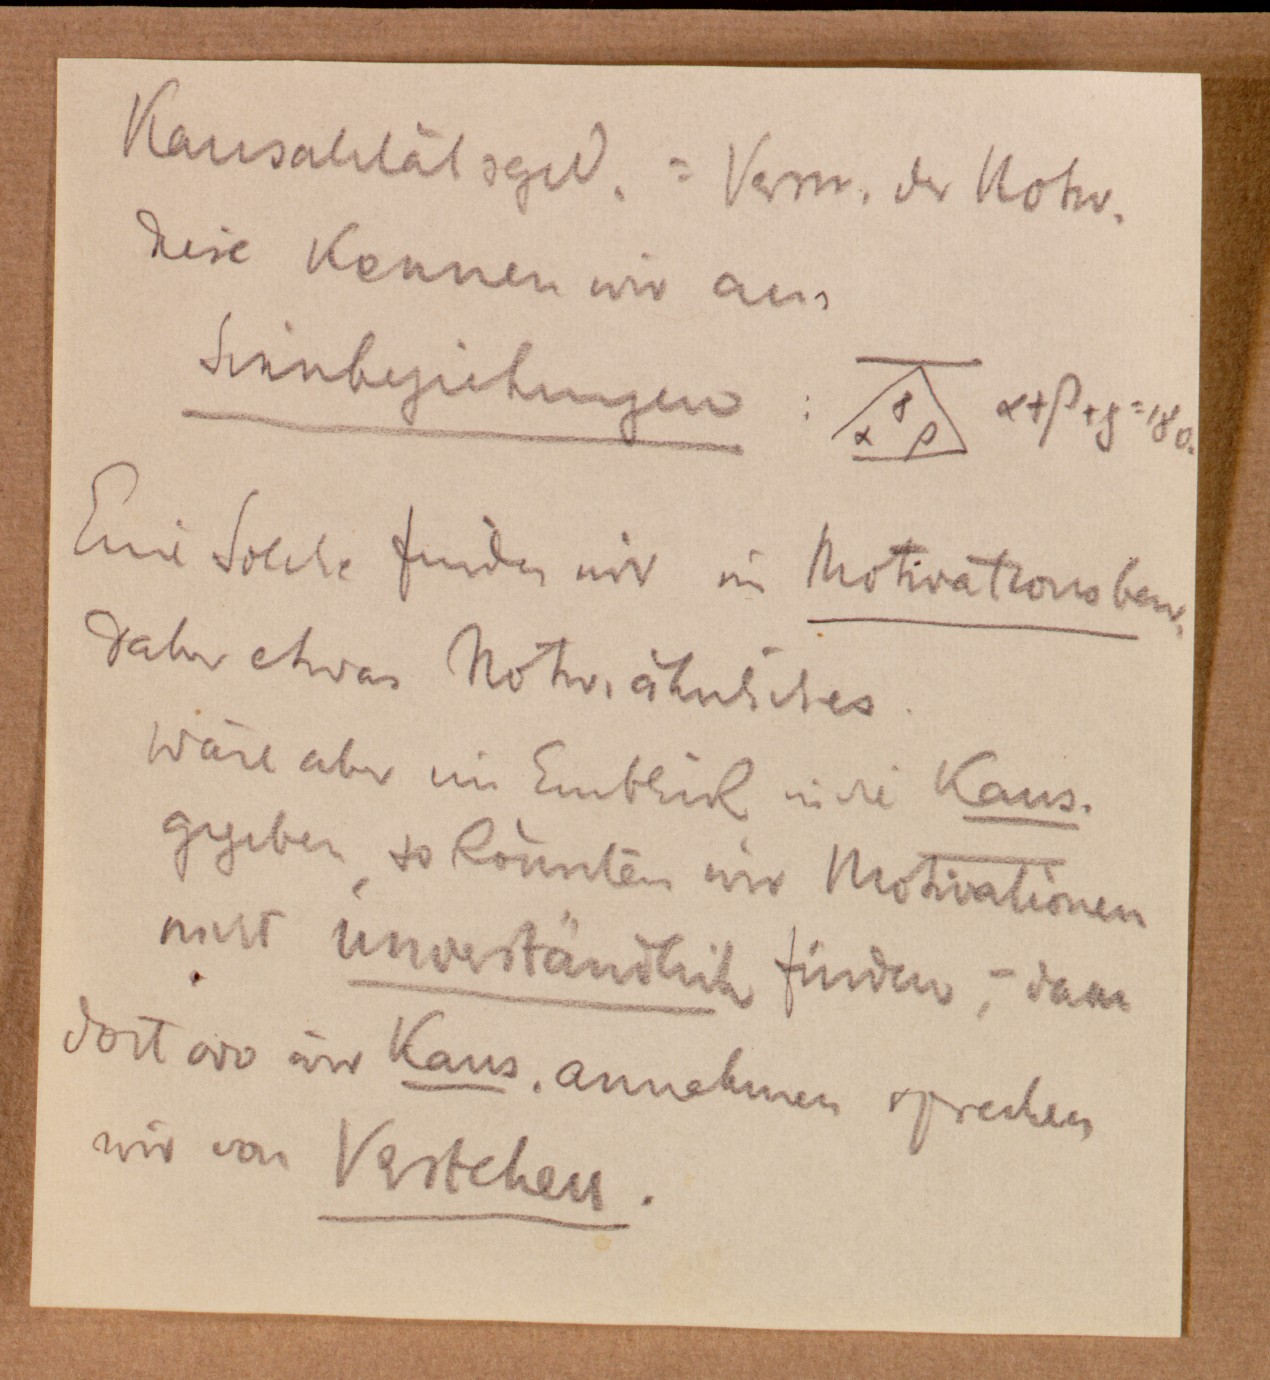 Kausalitätsged. = Verm. der Notw.
Diese kennen wir aus
Sinnbeziehungen : α β γ α+β+γ=180.
Eine Solche finden wir in Motivationsbew.
daher etwas Notw. ähnliches.
wäre aber ein Einblick in die Kaus.
gegeben, so könnten wir Motivationen
nicht unverständlich finden, - denn
dort wo wir Kaus. annehmen sprechen
wir von Verstehen.